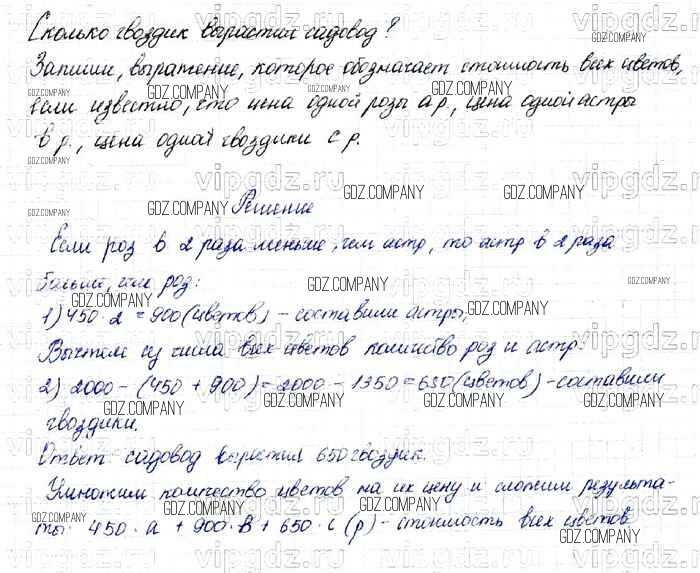 Сколько гвоздик вырастил садовод?
Запиши, выражение, которое обозначает стоимость всех цветов,
если известно, что цена одной розы a р., цена одной астры
в р., цена одной гвоздики c р.
Решение
Если роз в 2 раза меньше, чем астр, то астр в 2 раза
больше, чем роз:
1) 450 · 2 = 900 (цветов) - составили астры,
Вычтем из числа всех цветов количество роз и астр:
2) 2000 - (450 + 900) = 2000 - 1350 = 650 (цветов) - составили
гвоздики.
Ответ: садовод вырастил 650 гвоздик.
Умножим количество цветов на их цену и сложим результа-
ты: 450 · a + 900 · в + 650 · c (р) - стоимость всех цветов